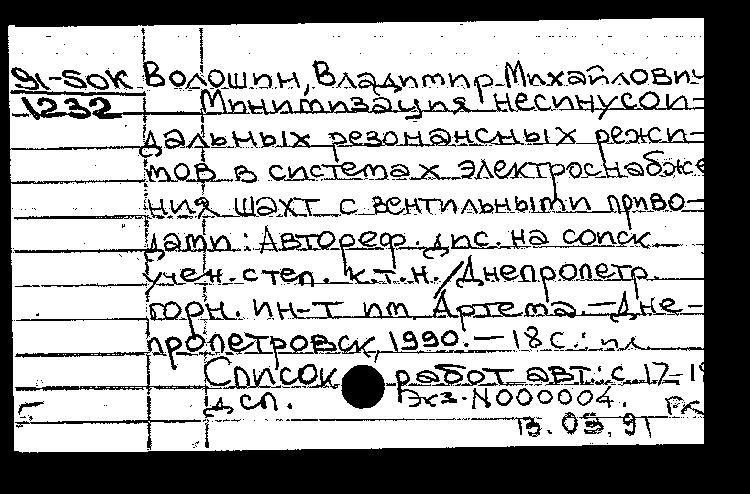 91-50К Волошин, Владимир Михайлович
1232 Минимизация несинусои-
дальных резонансных режи-
мов в системах электроснабже
ния шахт с вентильными приво-
дами: Автореф. дис. на соиск.
учен. степ. к.т.н. / Днепропетр.
горн. ин-т им. Артема. — Дне-
пропетровск, 1990. — 18 с.: ил
Список работ авт.: с. 17-18
дсп. Экз. N000004. РК
13.03.91